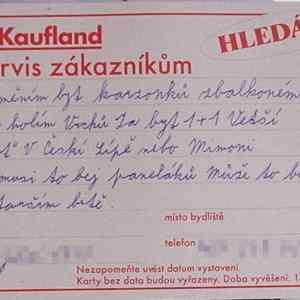 Kaufland
HLEDÁ
rvis zákazníkům
měním byt karzonků zbalkoném
holím Vrchů Za byt 1+1 Vetší
V České Lípě nebo Mimoni
musi to bej panelaků Může to b
starším bitě.
místo bydliště
telefon
Nezapomeňte uvést datum vystavení.
Karty bez data budou vyřazeny. Doba vyvěšení: 1